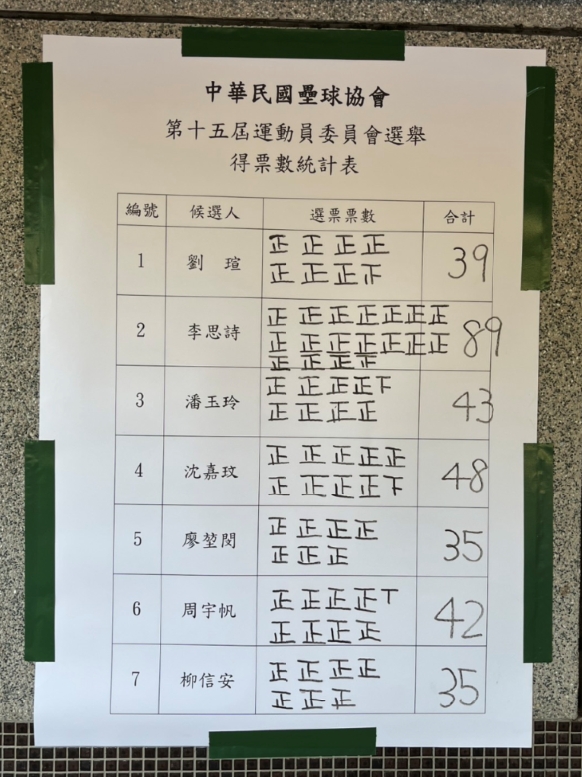 中華民國壘球協會
第十五屆運動員委員會選舉
得票數統計表
編號 候選人 選票票數 合計
1 劉瑄 正正正正 39
正正正正
2 李思詩 正正正正正正正 89
正正正正正正正
正正正正
3 潘玉玲 正正正正下 43
正正正正
4 沈嘉玟 正正正正正 48
正正正正下
5 廖堃閔 正正正正 35
正正正
6 周宇帆 正正正正丅 42
正正正正
7 柳信安 正正正正 35
正正正